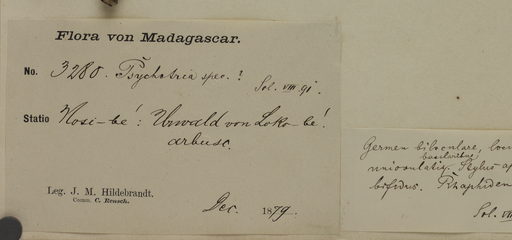 Flora von Madagascar.
No. 3280. Psychotria spec. ?
Sol. VIII 91.
Statio Nosi-bé: Urwald von Loko-bé.
arbusc.
Leg. J. M. Hildebrandt.
Comm. C. Rensch.
Dec. 1879.
Germen biloculare,
basilaribus
uniovulatis. Stylus
bifidus. Rhaphiden
Sol. VIII